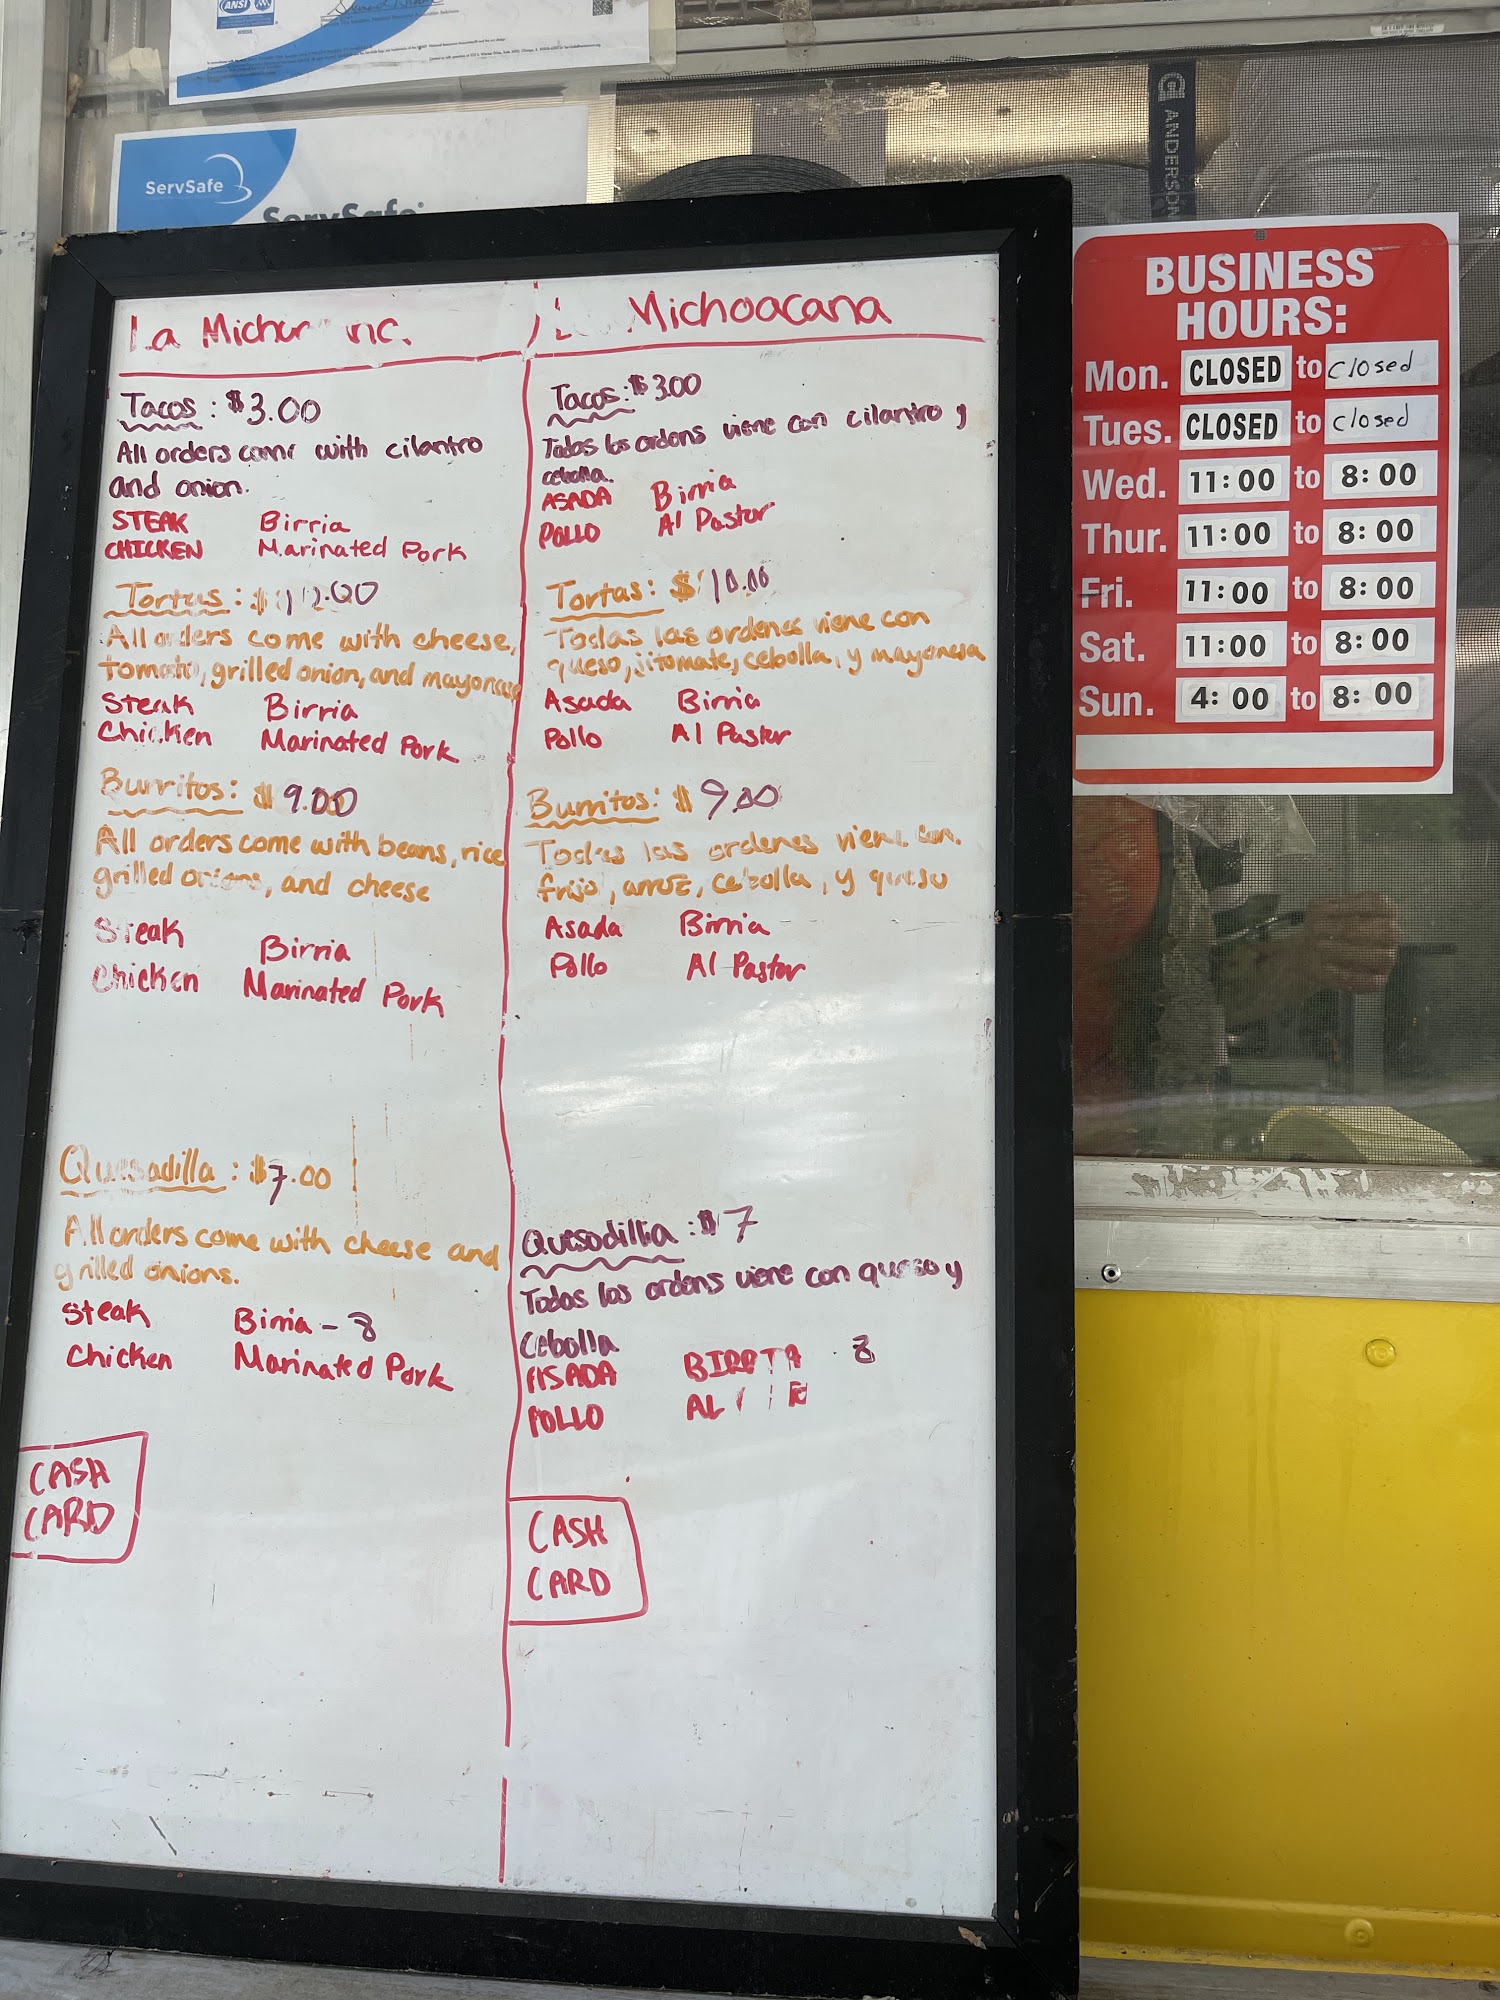 ANSI
ServSafe
ServSafe
ANDERSON
La
Michoacana
Tacos : $3.00
All orders come with cilantro
and onion.
STEAK Birria
CHICKEN Marinated Pork
Tortas :
All orders come with cheese,
tomato, grilled onion, and mayonase
Steak Birria
Chicken Marinated Pork
Burritos: $9.00
All orders come with beans, rice
grilled onions, and cheese
Steak Birria
Chicken Marinated Pork
Quesadilla : $7.00
All orders come with cheese and
grilled onions.
Steak Birria - 8
Chicken Marinated Pork
CASH
CARD
Tacos: $3.00
Todos los ordens viene con cilantro y
cebolla.
ASADA Birria
POLLO Al Pastor
Tortas: $10.00
Todas las ordenes viene con
queso, jitomate, cebolla, y mayonesa
Asada Birria
Pollo Al Pastor
Burritos: $9.00
Todas las ordenes viene con.
frijol, arroz, cebolla, y queso
Asada Birria
Pollo Al Pastor
Quesodillia : $7
Todos los ordens viene con queso y
cebolla
ASADA BIRRIA 8
POLLO AL
CASH
CARD
BUSINESS
HOURS:
Mon. CLOSED to closed
Tues. CLOSED to closed
Wed. 11:00 to 8:00
Thur. 11:00 to 8:00
Fri. 11:00 to 8:00
Sat. 11:00 to 8:00
Sun. 4:00 to 8:00